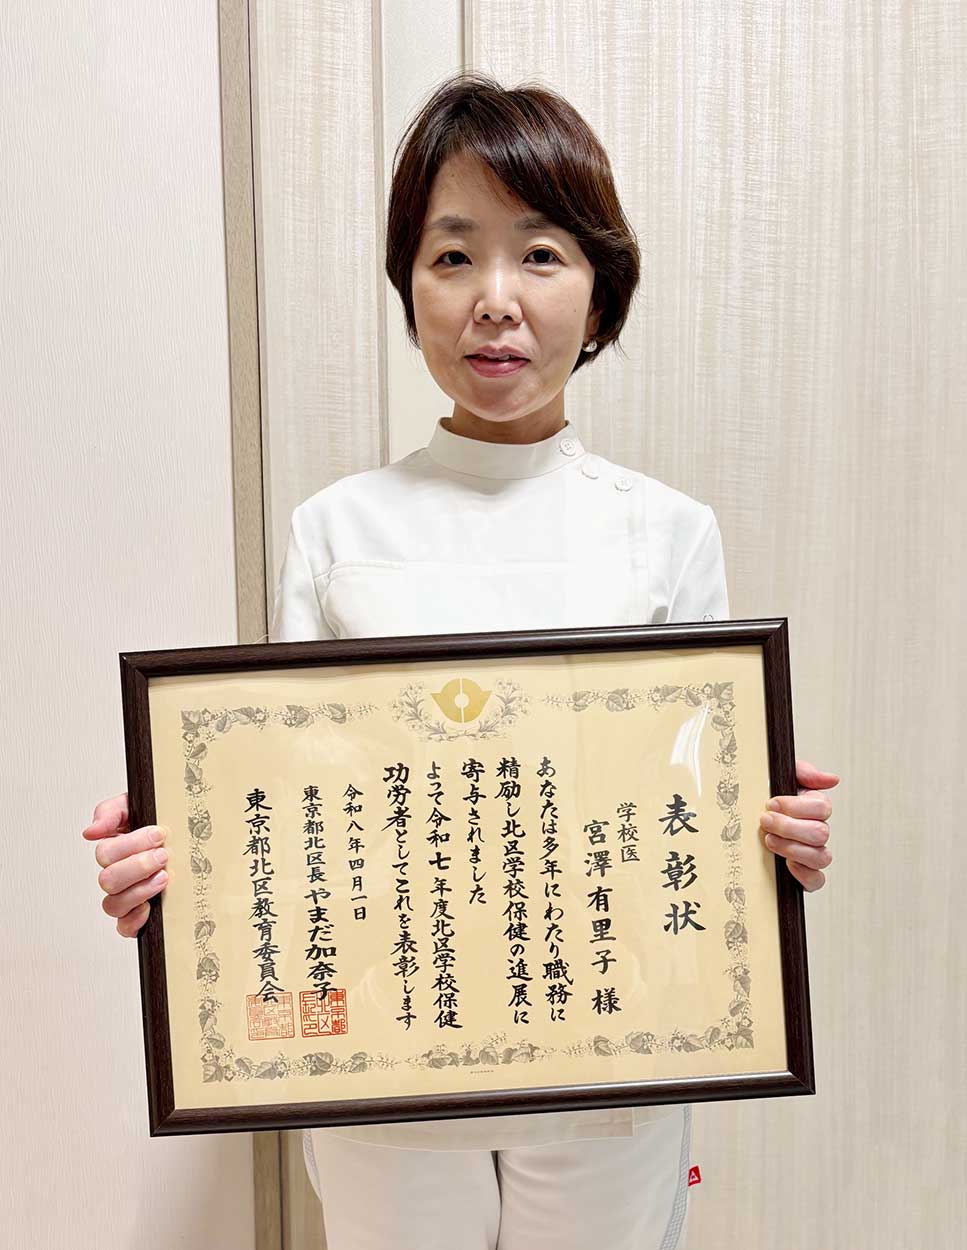 表彰状
学校医
宮澤有里子 様
あなたは多年にわたり職務に
精励し北区学校保健の進展に
寄与されました
よって令和七年度北区学校保健
功労者としてこれを表彰します
令和八年四月一日
東京都北区長 やまだ加奈子
東京都北区教育委員会